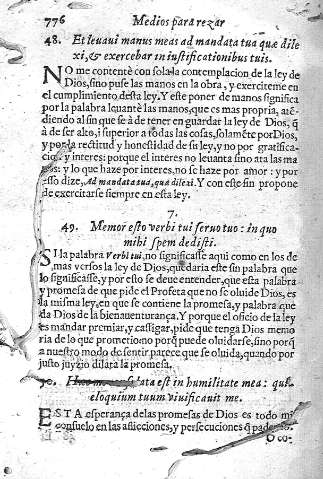 776 Medios para rezar
48. Et leuaui manus meas ad mandata tua quæ dile
xi, & exercebar in iustificationibus tuis.
NO me contentè con sola la contemplacion de la ley de
Dios, sino puse las manos en la obra, y exerciteme en
el cumplimiento desta ley. Y este poner de manos significa
por la palabra leuantè las manos, que es mas propria, atē-
diendo al fin que se à de tener en guardar la ley de Dios, q̄
à de ser alto, i superior a todas las cosas, solamēte por Dios,
y por la rectitud y honestidad de su ley, y no por gratifica-
cion, y interes: porque el interes no leuanta sino ata las ma
nos: y lo que haze por interes, no se haze por amor: y por
esso dize, Ad mandata tua, quæ dilexi. Y con este fin propone
de exercitarse siempre en esta ley.
7.
49. Memor esto verbi tui seruo tuo: in quo
mihi spem dedisti.
SI la palabra Verbi tui, no significasse aqui como en los de
mas versos la ley de Dios, quedaria este sin palabra que
lo significasse, y por esto se deue entender, que esta palabra
y promesa de que pide el Profeta que no se oluide Dios, es
la misma ley, en que se contiene la promesa, y palabra que
da Dios de la bienauenturança. Y porque el oficio de la ley
es mandar premiar, y castigar, pide que tenga Dios memo
ria de lo que prometio no porq̄ puede oluidarse, sino porq̄
a nuestro modo de sentir parece que se oluida, quando por
justo juyzio dilata la promesa.
50. Hæc me consolata est in humilitate mea: quia
eloquium tuum viuificauit me.
ESTA esperança de las promesas de Dios es todo mi
consuelo en las aflicciones, y persecuciones q̄ padezco.
O co-